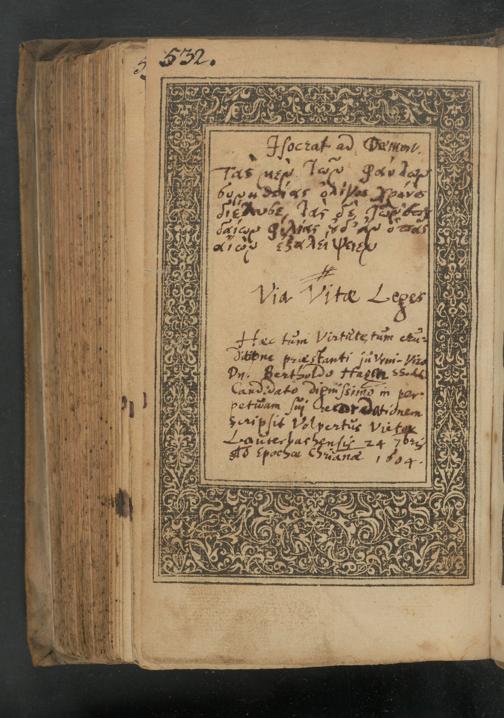 532.
Isocrat ad Demon.
Τὰς μὲν τῶν φαύλων
συνηθείας ὀλίγος χρόνος
διέλυσε, τὰς δὲ τῶν σπου
δαίων φιλίας οὐδ' ἂν ὁ πᾶς
αἰὼν ἐξαλείψειεν
Via Vitæ Leges
Hæc tùm Virtute, tum eru-
ditione præstanti juveni-Viro
Dn. Bertholdo Hagen
Candidato digniſsimo in per-
petuam sui recordationem
scripsit Volpertus Vietor
Lauterbachensis 24 7bris
Epochæ Chrianæ 1604.